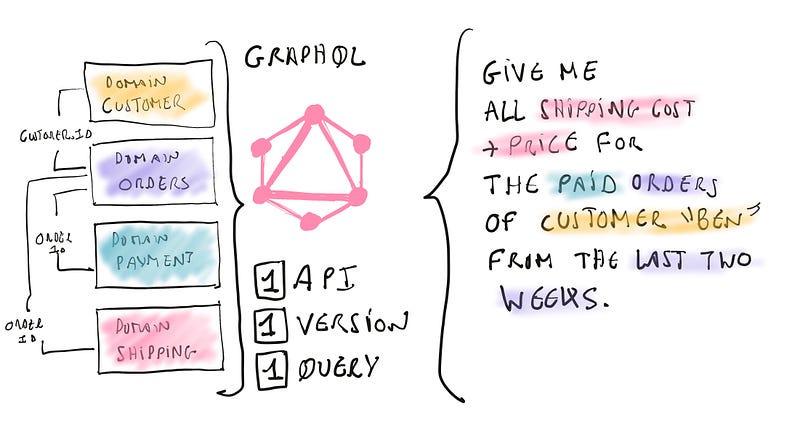 DOMAIN
CUSTOMER
CUSTOMER ID
DOMAIN
ORDERS
ORDER
ID
DOMAIN
PAYMENT
ORDER
ID
DOMAIN
SHIPPING
GRAPHQL
1 API
1 VERSION
1 QUERY
GIVE ME
ALL SHIPPING COST
+ PRICE FOR
THE PAID ORDERS
OF CUSTOMER "BEN"
FROM THE LAST TWO
WEEKS.